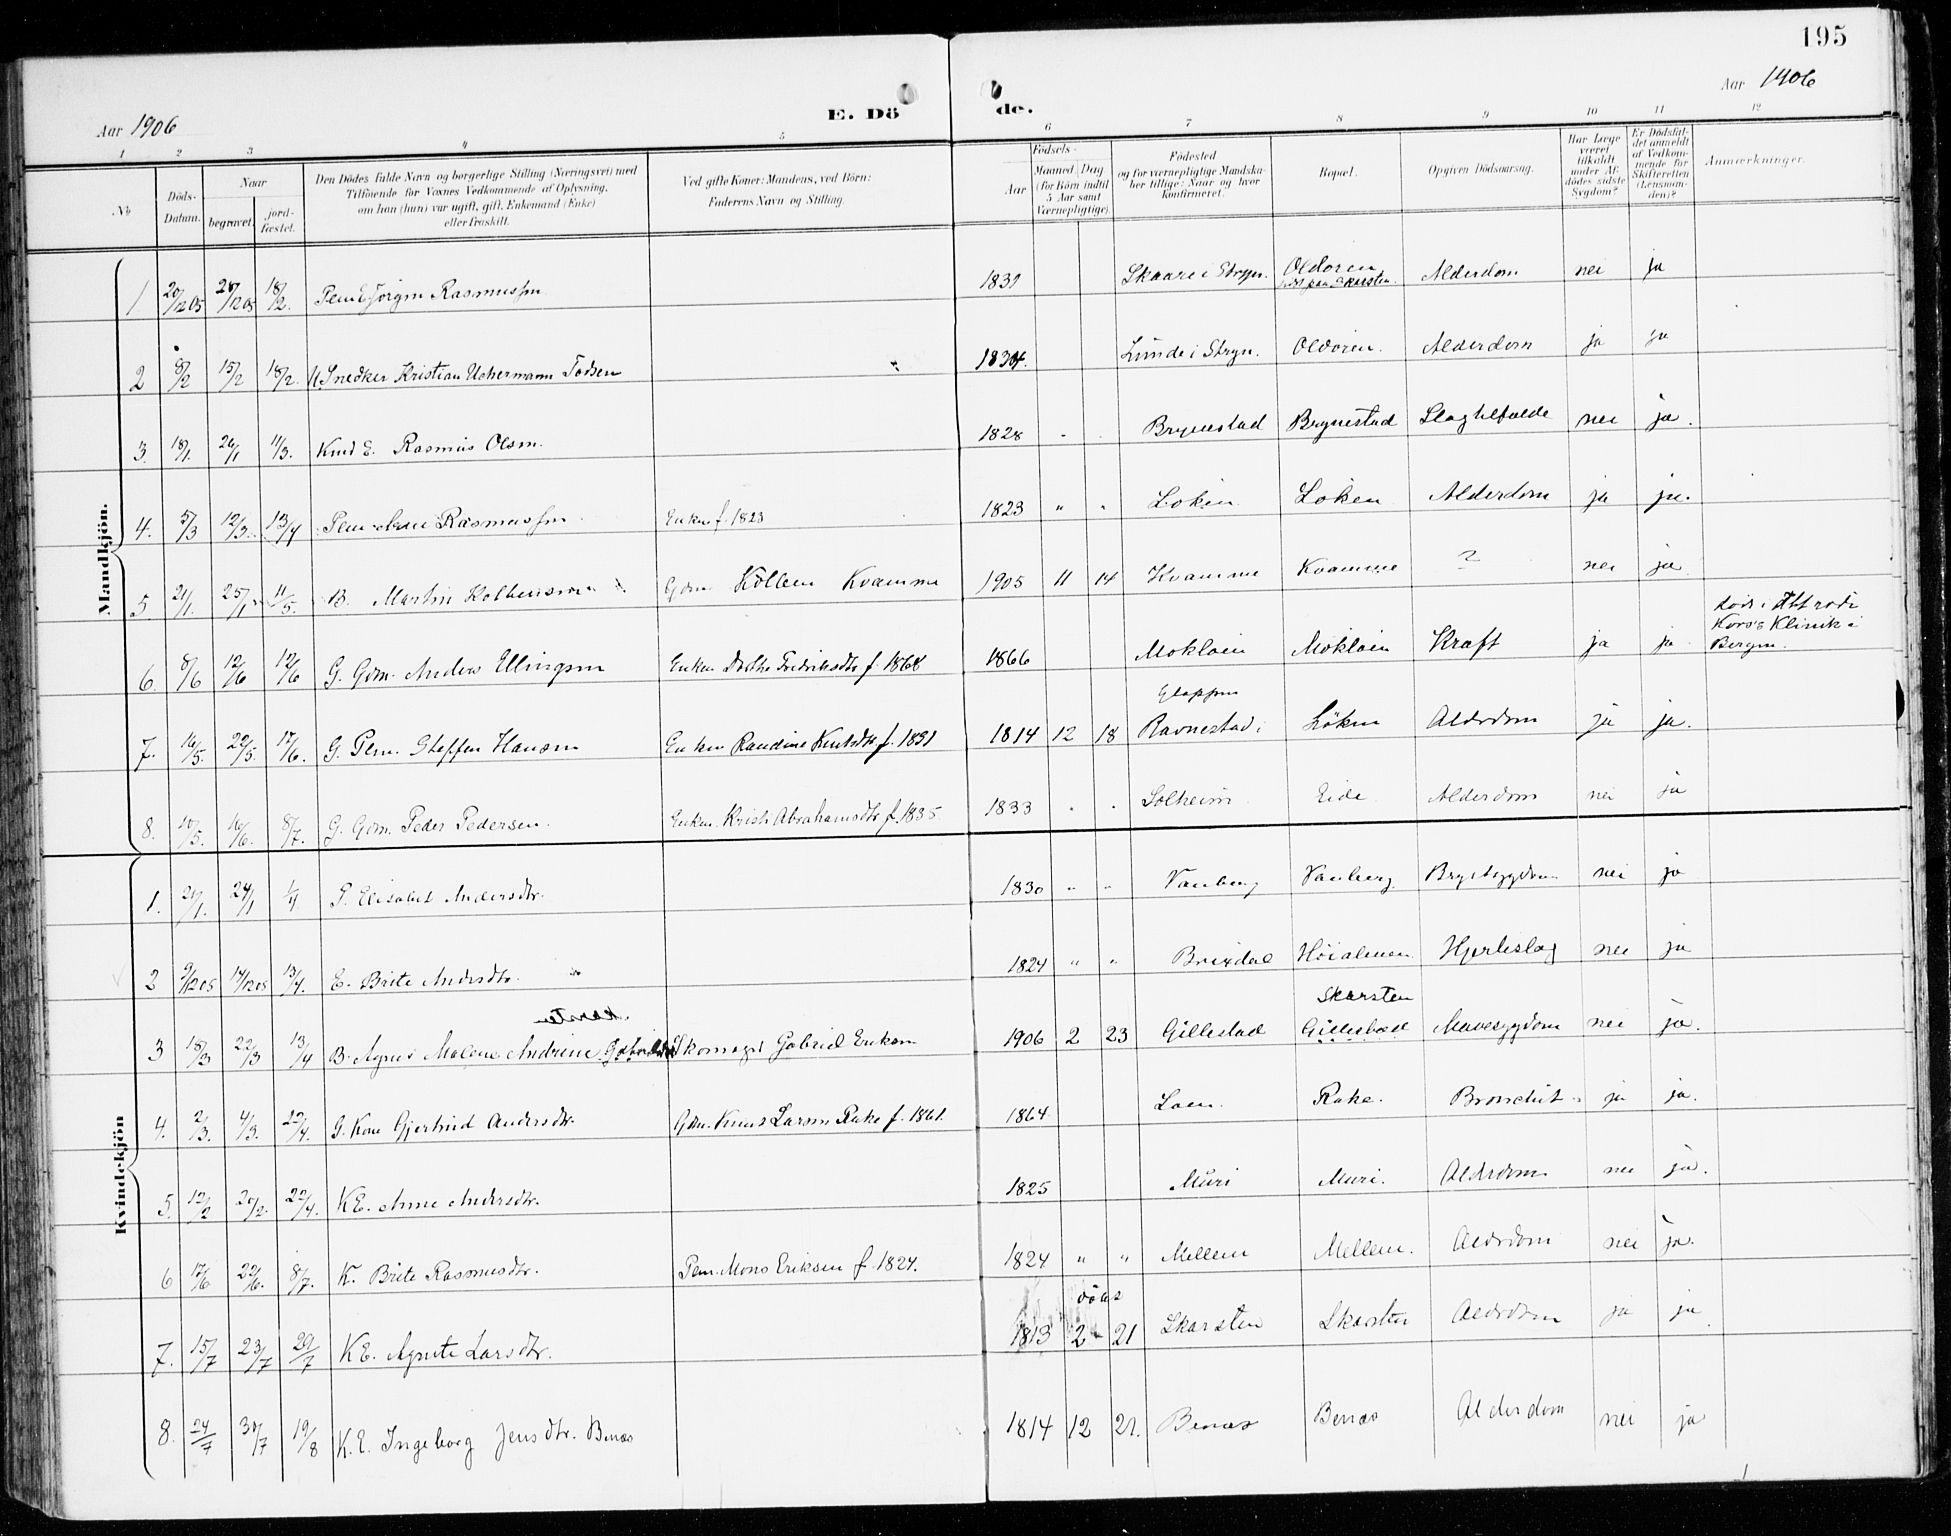 195
Aar 1906
E. Dö
de.
Aar 1906
1 2 3 4 5 6 7 8 9 10 11 12
No
Döds-Datum.
Naar
begravet.
jord-fæstet.
Den Dödes fulde Navn og borgerlige Stilling (Næringsvei) med
Tilföiende for Voxnes Vedkommende af Oplysning,
om han (hun) var ugift, gift, Enkemand (Enke)
eller fraskilt.
Ved gifte Koner: Mandens, ved Börn:
Faderens Navn og Stilling.
Födsels-
Aar
Maaned Dag
(for Börn indtil
5 Aar samt
Værnepligtige).
Födested
og for værnepligtige Mandska-
ber tillige: Naar og hvor
konfirmeret.
Bopæl.
Opgiven Dödsaarsag.
Har Læge
været
tilkaldt
under Af-
dödes sidste
Sygdom?
Er Dödsfal-
det anmeldt
af Vedkom-
mende for
Skifteretten
(Lensman-
den)?
Anmærkninger.
Mandkjön.
1 20/12 05 28/12 05 18/2. Jørgen Rasmussen 1831 Skaare i Stryn. Oldøren Alderdom nei ja
2 8/2 15/2 18/2. Snedker Kristian Uchermann Todsen 1834. Lunde i Stryn. Oldøren. Alderdom ja ja
3. 18/1. 26/1 11/3. Rasmus Olsen. 1828 Brynestad Brynestad Slagtilfælde nei ja.
4. 5/3 12/3. 13/4 Rasmussen Enken f. 1823 1823 " " Loken Loken Alderdom ja ja.
5 21/1. 25/1 11/5. B. Martin Kolbensen Gdm. Kolben Kvamme 1905 11 14 Kvamme Kvamme ? nei ja
død i Det røde
Kors's Klinik i
Bergen.
6. 8/6 12/6 12/6 G. Gdm. Anders Ellingsen Enken Dorthe Fredriksdtr f. 1868 1866 Mokløin Mokløin Kræft ja ja
Gloppen
7. 16/5. 22/5. 17/6. G. Pem. Steffen Hansen Enken Randine Knutsdtr f. 1831 1814 12 18 Ravnestad i Løken Alderdom ja ja.
8. 10/5. 16/6. 8/7. G. Gdm. Peder Pedersen. Enken Kristi Abrahamsdtr f. 1835. 1833 Solheim Eide Alderdom nei ja
Kvindekjön
1. 21/1. 24/1 1/4 P. Elisabet Andersdtr. 1830 " " Vanberg Vanberg Brystsygdom nei ja
2 9/12 05 17/12 05 13/4. E. Brite Andersdtr. 1824 " " Brixdal Høialmen Hjerteslag nei ja
Skarsten
3 18/3 22/3 13/4 B. Agnes Malene Andrine Gabrielsdtr Skomager Gabriel Eriksen 1906 2 23 Gillestad Gillestad Mavesygdom nei ja.
4. 2/3. 4/3. 22/4. G. Kone Gjertrud Andersdtr. Gdm. Knut Larsen Rake f. 1861. 1864 Loen. Rake. Bronchit ja ja.
5. 12/2 20/2. 22/4. KE. Anne Andersdtr. 1825 Muri Muri. Alderdom nei ja.
6 17/6 22/6. 8/7. K. Brite Rasmusdtr. Pem. Mons Eriksen f. 1824. 1824 " " Mellem Mellem. Alderdom nei ja.
døbt
7. 15/7 23/7 29/7 KE. Agnete Larsdtr. 1813 2 21 Skarsten Skarsten Alderdom ja ja
8. 24/7 30/7 19/8 K.E. Ingeborg Jensdtr. Benæs 1814 12 21. Benæs Benæs Alderdom nei ja